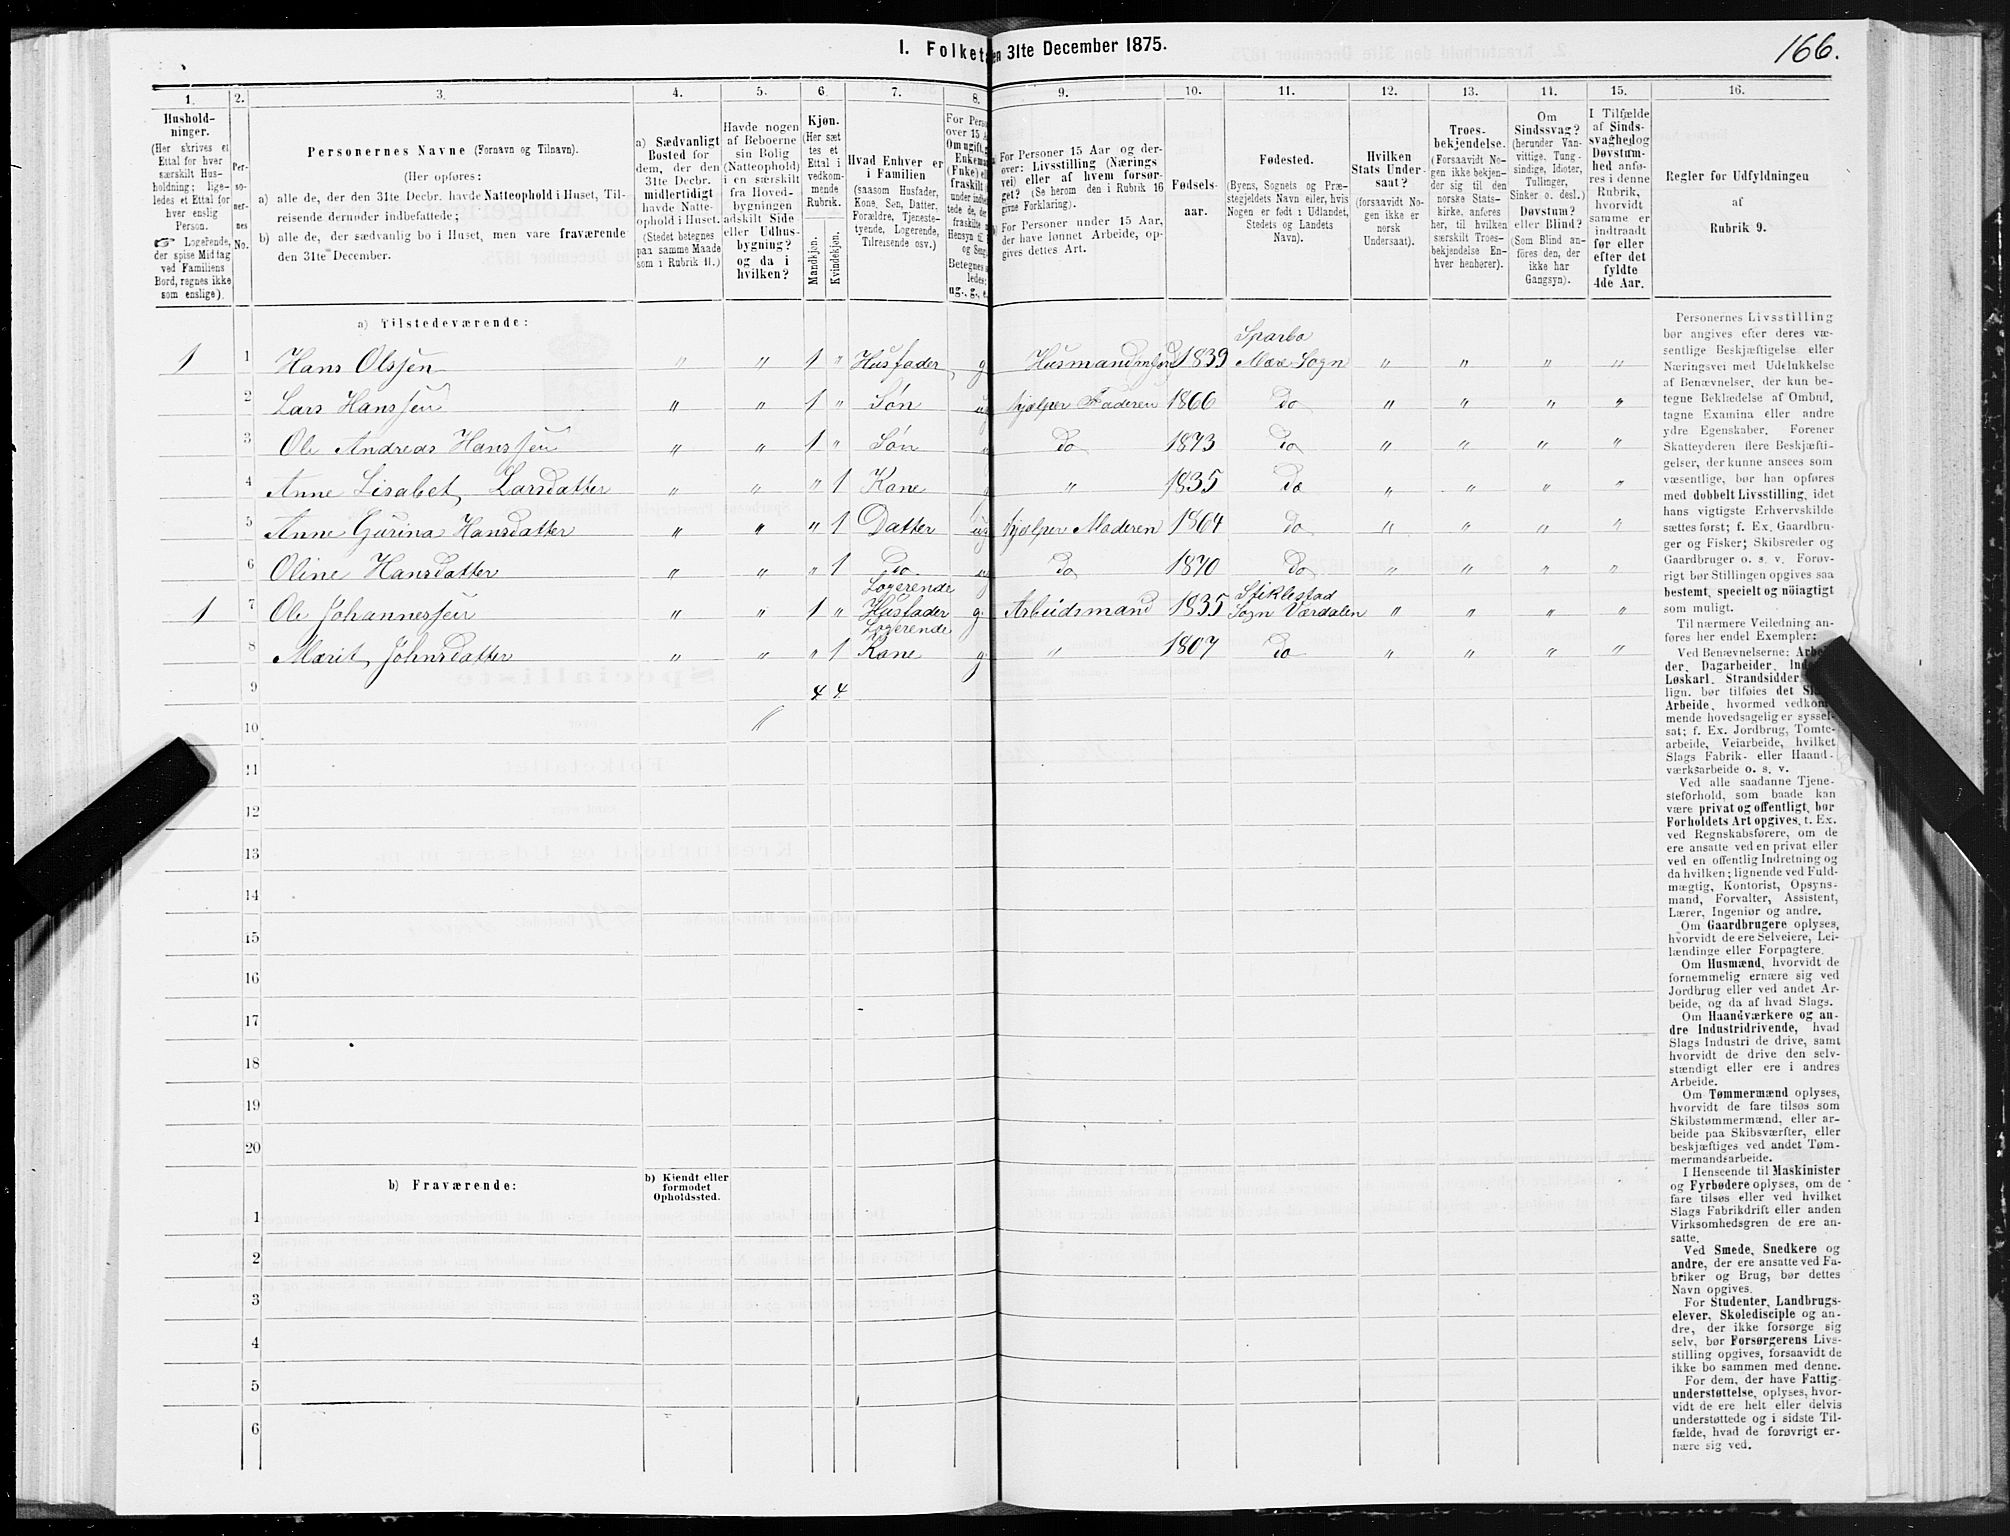 166.
I. Folket
en 31te December 1875.
1.
2.
3.
4.
5.
6.
7.
8.
9.
10.
11.
12.
13.
14.
15.
16.
Hushold-
ninger.
(Her skrives et
Ettal for hver
særskilt Hus-
holdning; lige-
ledes et Ettal for
hver enslig
Person.
☞ Logerende,
der spise Middag
ved Familiens
Bord, regnes ikke
som enslige).
Per-
so-
ner-
nes
No.
Personernes Navne (Fornavn og Tilnavn).
(Her opføres:
a) alle de, der den 31te Decbr. havde Natteophold i Huset, Til-
reisende derunder indbefattede;
b) alle de, der sædvanlig bo i Huset, men vare fraværende
den 31te December.
a) Sædvanligt
Bosted for
dem, der den
31te Decbr.
midlertidigt
havde Natte-
ophold i Huset.
(Stedet betegnes
paa samme Maade
som i Rubrik 11.)
Havde nogen
af Beboerne
sin Bolig
(Natteophold)
i en særskilt
fra Hoved-
bygningen
adskilt Side
eller Udhus-
bygning?
og da i
hvilken?
Kjøn.
(Her sæt
tes et
Ettal i
vedkom-
mende
Rubrik.
Mandkjøn.
Kvindekjøn.
Hvad Enhver er
i Familien
(saasom Husfader,
Kone, Søn, Datter,
Forældre, Tjeneste-
tyende, Logerende,
Tilreisende osv.)
For Perso
over 15 Aa
Om ugift, g
Enkema
(Enke) ell
fraskilt
Betegnes s
ledes:
ug., g., e.
For Personer 15 Aar og der-
over: Livsstilling (Nærings
vei) eller af hvem forsør-
get? (Se herom den i Rubrik 16
givne Forklaring).
For Personer under 15 Aar,
der have lønnet Arbeide, op-
gives dettes Art.
Fødsels-
aar.
Fødested.
(Byens, Sognets og Præ-
stegjeldets Navn eller, hvis
Nogen er født i Udlandet,
Stedets og Landets
Navn).
Hvilken
Stats Under-
saat?
(forsaavidt No-
gen ikke er
norsk
Undersaat).
Troes-
bekjendelse.
(Forsaavidt No-
gen ikke bekjen-
der sig til den
norske Stats-
kirke, anføres
her, til hvilken
særskilt Troes-
bekjendelse En-
hver henhører).
Om
Sindssvag?
(herunder Van-
vittige, Tung-
sindige, Idioter,
Tullinger,
Sinker o. desl.)
Døvstum?
eller Blind?
(Som Blind an-
føres den, der
ikke har
Gangsyn).
I Tilfælde
af Sinds-
svaghed og
Døvstum-
hed anfø-
res i denne
Rubrik,
hvorvidt
samme er
indtraadt
før eller
efter det
fyldte
4de Aar.
Regler for Udfyldningen
af
Rubrik 9.
a) Tilstedeværende:
1 1 Hans Olssen " " 1 " Husfader g Husmand m Jord 1839 Sparbo Mære Sogn " " " "
2 Lars Hanssen " " 1 " Søn ug hjelper Faderen 1866 Do " " " "
3 Ole Andreas Hanssen " " 1 " Søn " Do 1873 Do " " " "
4 Anne Lisabet Larsdatter " " " 1 Kone g " 1835 Do " " " "
5 Anne Gurina Hansdatter " " " 1 Datter ug hjelper Moderen 1864 do " " " "
6 Oline Hansdatter " " " 1 Do ug Do 1870 Do " " " "
1 7 Ole Johannessen " " 1 " Logerende Husfader g. Arbeidsmand 1835 Stiklestad Sogn Værdalen " " " "
8 Marit Johnsdatter " " " 1 Logerende Kone g. " 1807 Do " " " "
9 4 4
10 "
11
12
13
14
15
16
17
18
19
20
b) Fraværende:
b) Kjendt eller
formodet
Opholdssted.
1
2
3
4
5
6
Personernes Livsstilling
bør angives efter deres væ-
sentlige Beskjæftigelse eller
Næringsvei med Udelukkelse
af Benævnelser, der kun be-
tegne Beklædelse af Ombud,
tagne Examina eller andre
ydre Egenskaber. Forener
Skatteyderen flere Beskjæfti-
gelser, der kunne ansees som
væsentlige, bør han opføres
med dobbelt Livsstilling, idet
hans vigtigste Erhvervskilde
sættes først; f. Ex. Gaardbru-
ger og Fisker; Skibsreder og
Gaardbruger o. s. v. Forøv-
rigt bør Stillingen opgives saa
bestemt, specielt og nøiagtigt
som muligt.
Til nærmere Veiledning an-
føres her endel Exempler:
Ved Benævnelserne: Arbei-
der, Dagarbeider, Inde
Løskarl, Strandsidder
lign. bør tilføies det Sla
Arbeide, hvormed vedkom-
mende hovedsagelig er syssel-
sat; f. Ex. Jordbrug, Tomte-
arbeide, Veiarbeide, hvilket
Slags Fabrik- eller Haand-
værksarbeide o. s. v.
Ved alle saadanne Tjene-
steforhold, som baade kan
være privat og offentligt, bør
Forholdets Art opgives, t. Ex.
ved Regnskabsførere, om de
ere ansatte ved en privat eller
ved en offentlig Indretning og
da hvilken; lignende ved Fuld-
mægtig, Kontorist, Opsyns-
mand, Forvalter, Assistent,
Lærer, Ingeniør og andre.
Om Gaardbrugere oplyses,
hvorvidt de ere Selveiere, Lei-
lændinge eller Forpagtere.
Om Husmænd, hvorvidt de
fornemmelig ernære sig ved
Jordbrug eller ved andet Ar-
beide, og da af hvad Slags.
Om Haandværkere og an-
dre Industridrivende, hvad
Slags Industri de drive, samt
hvorvidt de drive den selv-
stændigt eller ere i andres
Arbeide.
Om Tømmermænd oplyses,
hvorvidt de fare tilsøs som
Skibstømmermænd, eller ar-
beide paa Skibsværfter, eller
beskjæftiges ved andet Tøm-
mermandsarbeide.
I Henseende til Maskinister
og Fyrbødere oplyses, om de
fare tilsøs eller ved hvilket
Slags Fabrikdrift eller anden
Virksomhedsgren de ere an-
satte.
Ved Smede, Snedkere og
andre, der ere ansatte ved Fa-
briker og Brug, bør dettes
Navn opgives.
For Studenter, Landbrugs-
elever, Skoledisciple og an-
dre, der ikke forsørge sig
selv, bør Forsørgerens Livs-
stilling opgives, forsaavidt de
ikke bo sammen med denne.
For dem, der have Fattig-
understøttelse, oplyses, hvor-
vidt de ere helt eller delvis
understøttede og i sidste Til-
fælde, hvad de forøvrigt er-
nære sig ved.